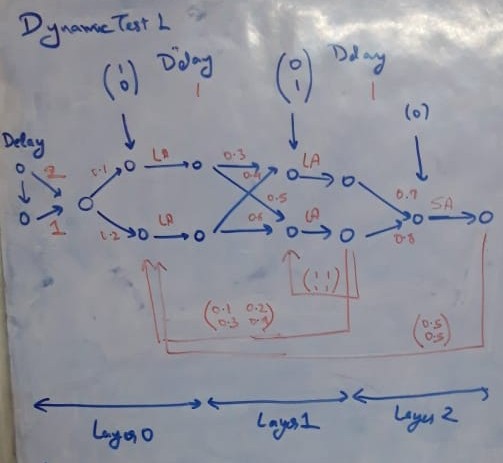 Dynamic Test 1
(1 0) Delay 1
(0 1) Delay 1
(0)
Delay
2
1
0.1
1.2
LA
LA
0.3
0.4
0.5
0.6
LA
LA
0.7
0.8
SA
(1 1
1 1)
(0.1 0.2
0.3 0.9)
(0.5
0.5)
Layer 0
Layer 1
Layer 2